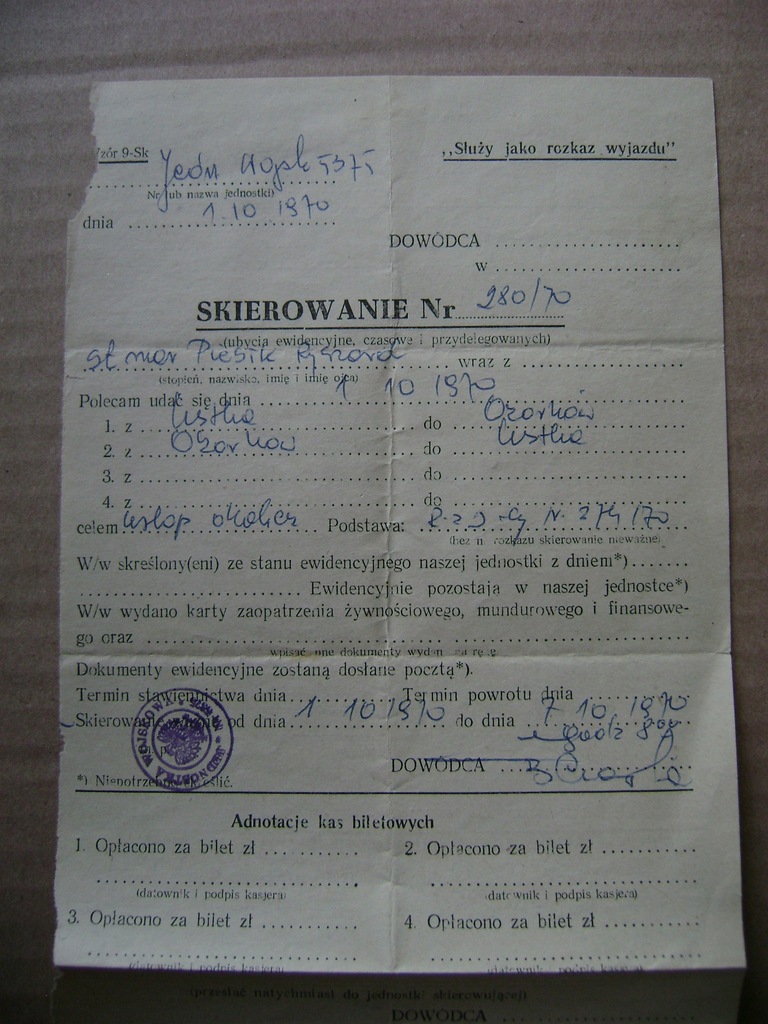 zór 9-Sk
Jedn Wojsk 5375
„Służy jako rozkaz wyjazdu"
Nr lub nazwa jednostki)
dnia 1.10 1970
DOWÓDCA
w
SKIEROWANIE Nr 280/70
(ubycia ewidencyjne, czasowe i przydelegowanych)
st mar Ryszard wraz z
(stopień, nazwisko, imię i imię ojca)
Polecam udać się dnia 1 10 1970
1. z Ustka do Ozorków
2. z Ozorków do Ustka
3. z do
4. z do
celem urlop okolicz Podstawa: N. 274/70
(bez n. rozkazu skierowanie nieważne)
W/w skreślony(eni) ze stanu ewidencyjnego naszej jednostki z dniem*)
Ewidencyjnie pozostają w naszej jednostce*)
W/w wydano karty zaopatrzenia żywnościowego, mundurowego i finansowe-
go oraz
wpisać inne dokumenty wydan na ręce
Dokumenty ewidencyjne zostaną dosłane pocztą*).
Termin stawiennictwa dnia Termin powrotu dnia
Skierowanie ważne od dnia 1 10 1970 do dnia 7 10. 1970
godz 800
JEDNOSTKA WOJSKOWA
DOWÓDCA
*) Niepotrzebne skreślić.
Adnotacje kas biletowych
1. Opłacono za bilet zł
2. Opłacono za bilet zł
(datownik i podpis kasjera)
(datownik i podpis kasjera)
3. Opłacono za bilet zł
4. Opłacono za bilet zł
(datownik i podpis kasjera)
(datownik i podpis kasjera)
(przesłać natychmiast do jednostki skierowującej)
DOWÓDCA